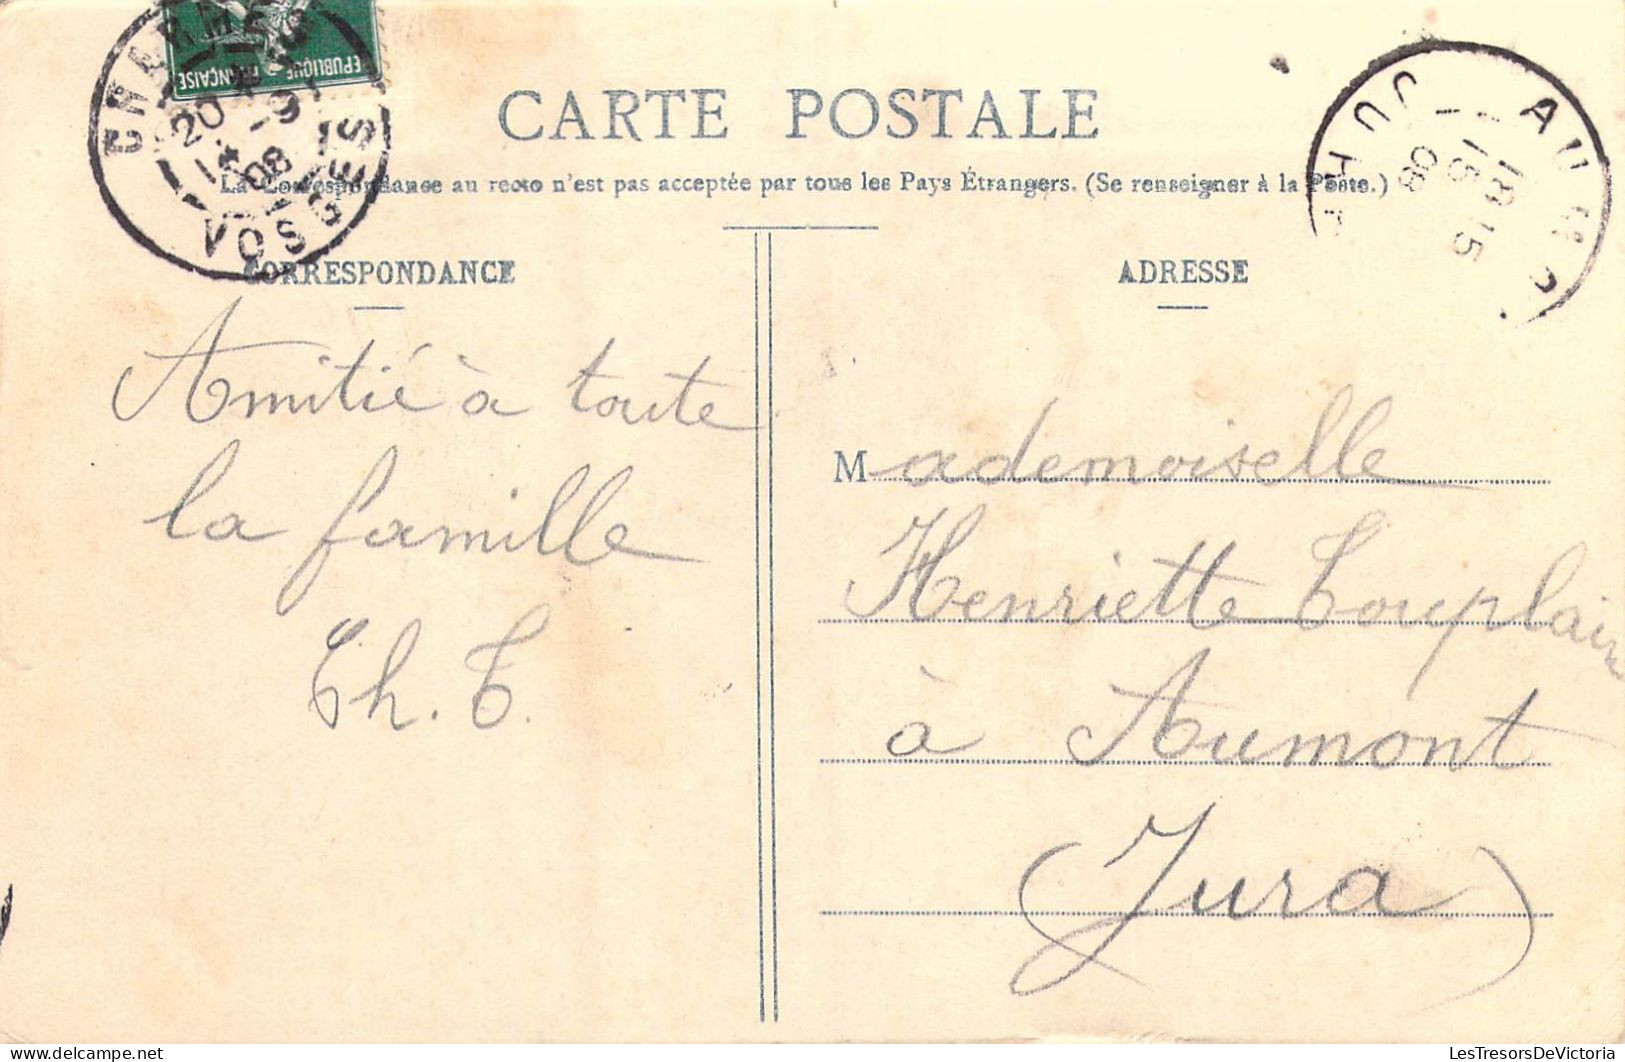 CHARMES
VOSGES
20
-9
08
REPUBLIQUE FRANÇAISE
CARTE POSTALE
La Correspondance au recto n'est pas acceptée par tous les Pays Étrangers. (Se renseigner à la Poste.)
18 15
15
08
CORRESPONDANCE
Amitié à toute
la famille
Ch. T.
ADRESSE
Mademoiselle
Henriette Touplain
à Aumont
(Jura)
LesTresorsDeVictoria